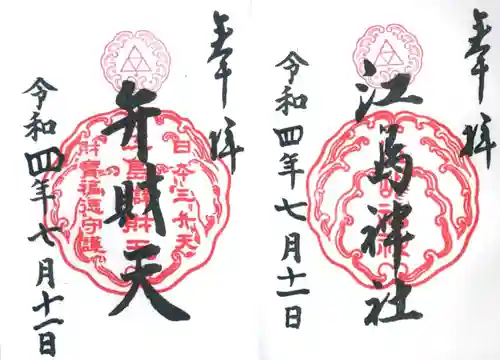 奉拝
弁財天
日本三弁天
財寶福徳守護
令和四年七月十一日
奉拝
江島神社
令和四年七月十一日